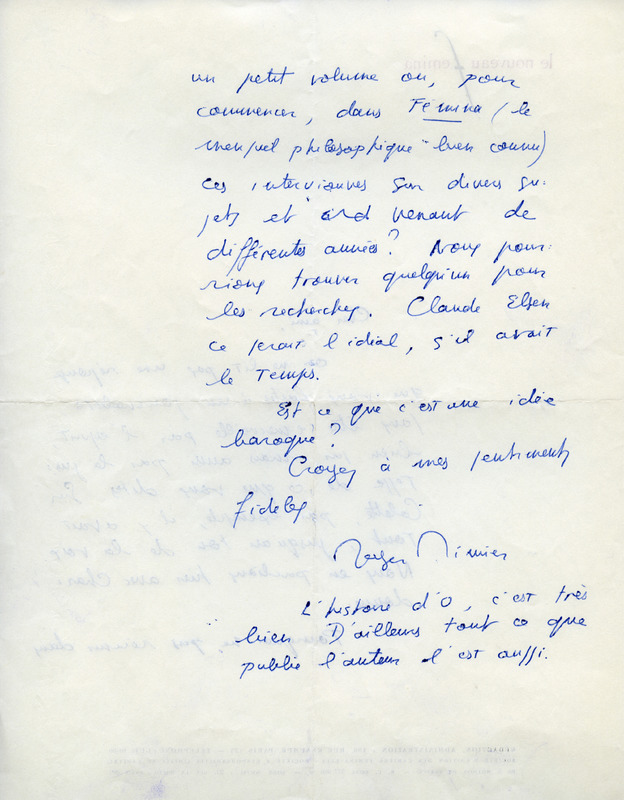 un petit volume ou, pour
commencer, dans Fémina (le
mensuel philosophique bien connu)
ces interviewes sur divers su-
jets et venant de
différentes années? Nous pour-
rions trouver quelqu'un pour
les recherches. Claude Elsen
ce serait l'idéal, s'il avait
le temps.
Est ce que c'est une idée
baroque?
Croyez à mes sentiments
fidèles
Roger Nimier
L'histoire d'O, c'est très
bien D'ailleurs tout ce que
publie l'auteur l'est aussi.